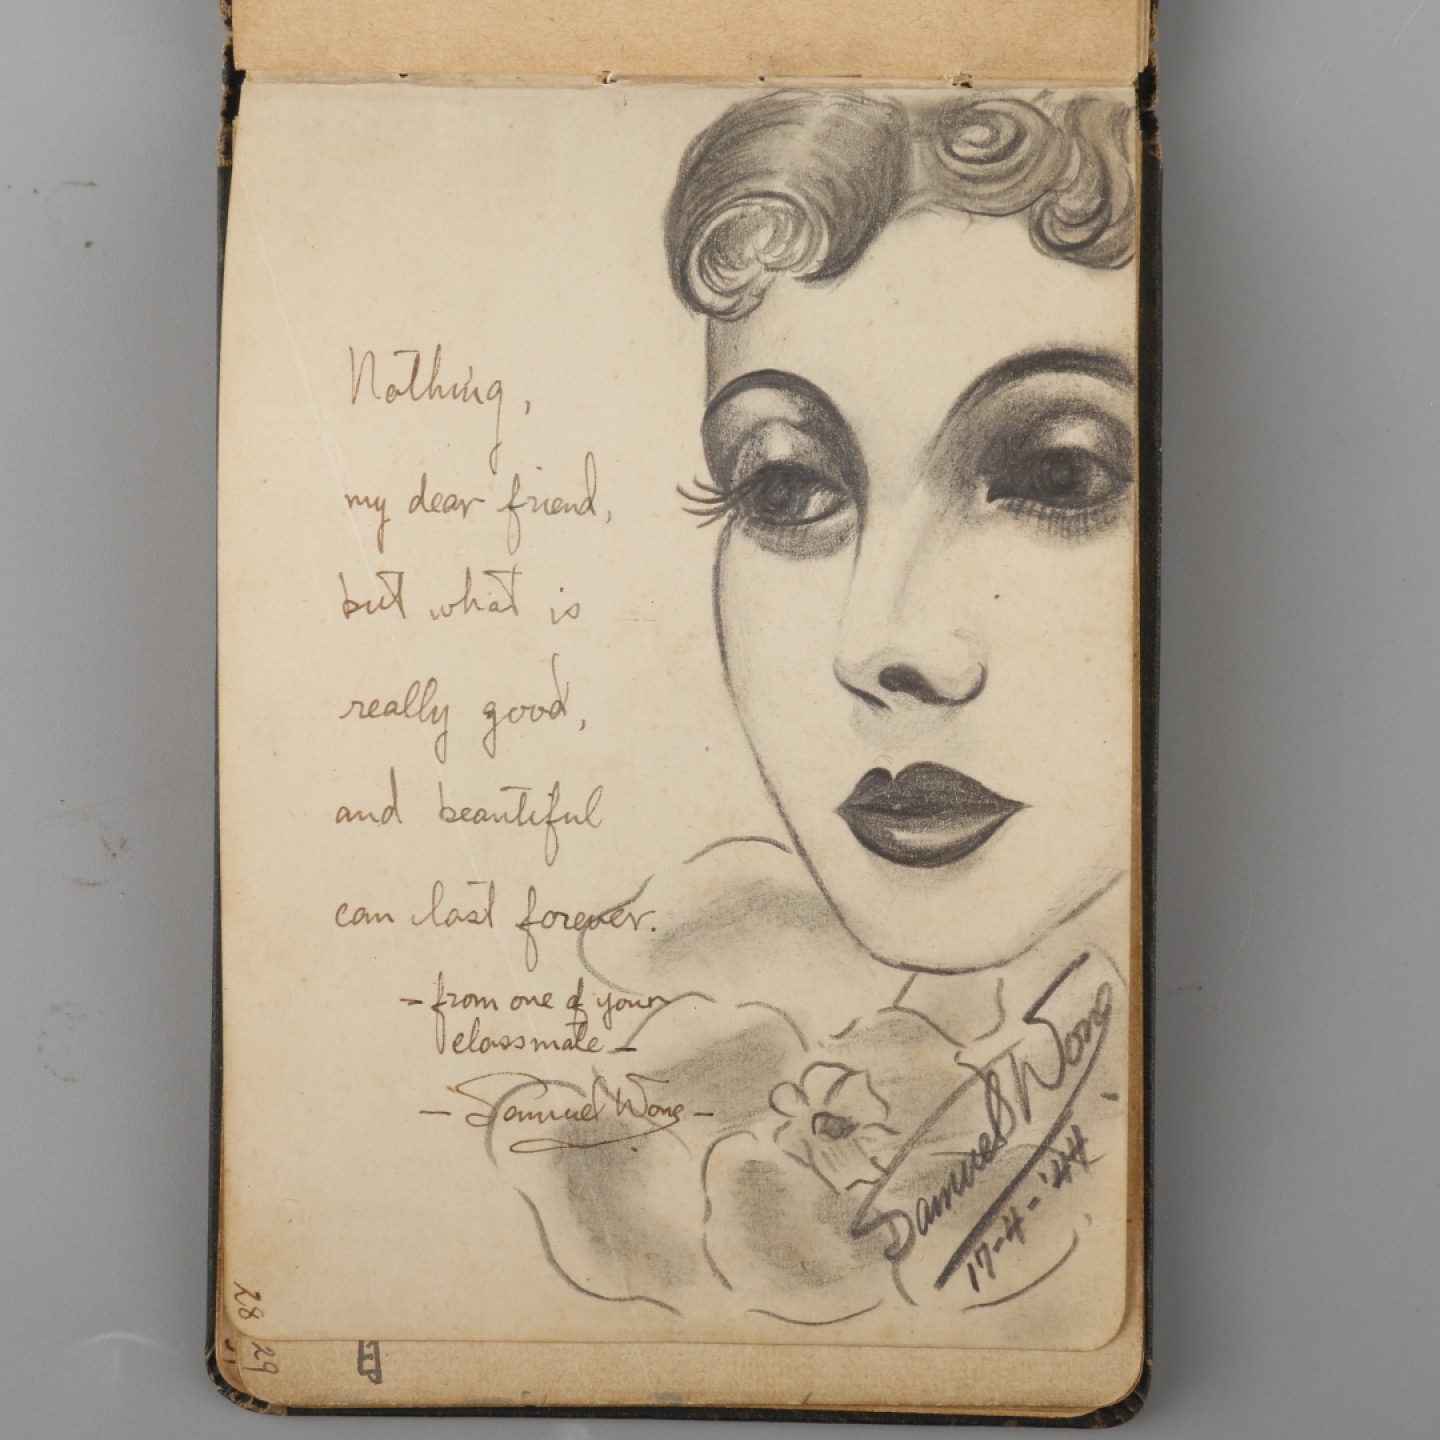 Nothing,
my dear friend,
but what is
really good,
and beautiful
can last forever.
- from one of your
classmate -
- Samuel Wong -
Samuel Wong
17-4-'44
28
29